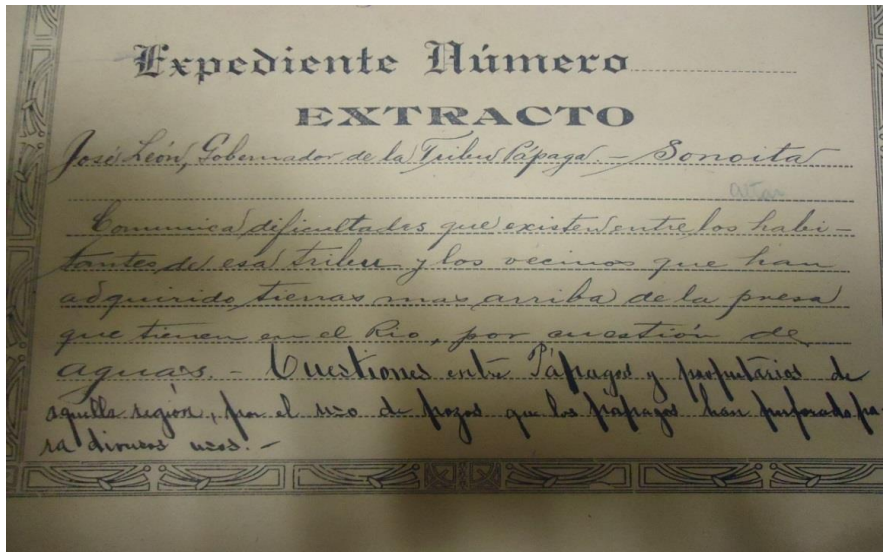 Expediente Número
EXTRACTO
José León, Gobernador de la Tribu Pápaga. - Sonoita
Altar
Comunica dificultades que existen entre los habi-
tantes de esa tribu y los vecinos que han
adquirido tierras mas arriba de la presa
que tienen en el Rio, por cuestión de
aguas. - Cuestiones entre Pápagos y propietarios de
aquella región, por el uso de pozos que los pápagos han perforado pa-
ra diversos usos. -